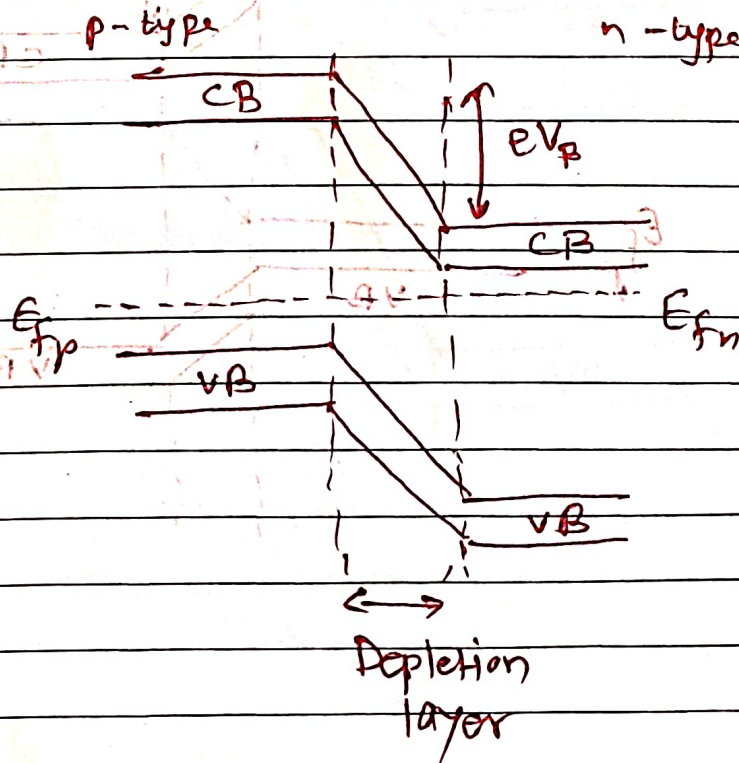 p-type
n-type
CB
eV_B
CB
E_fp
E_fn
VB
VB
Depletion
layer